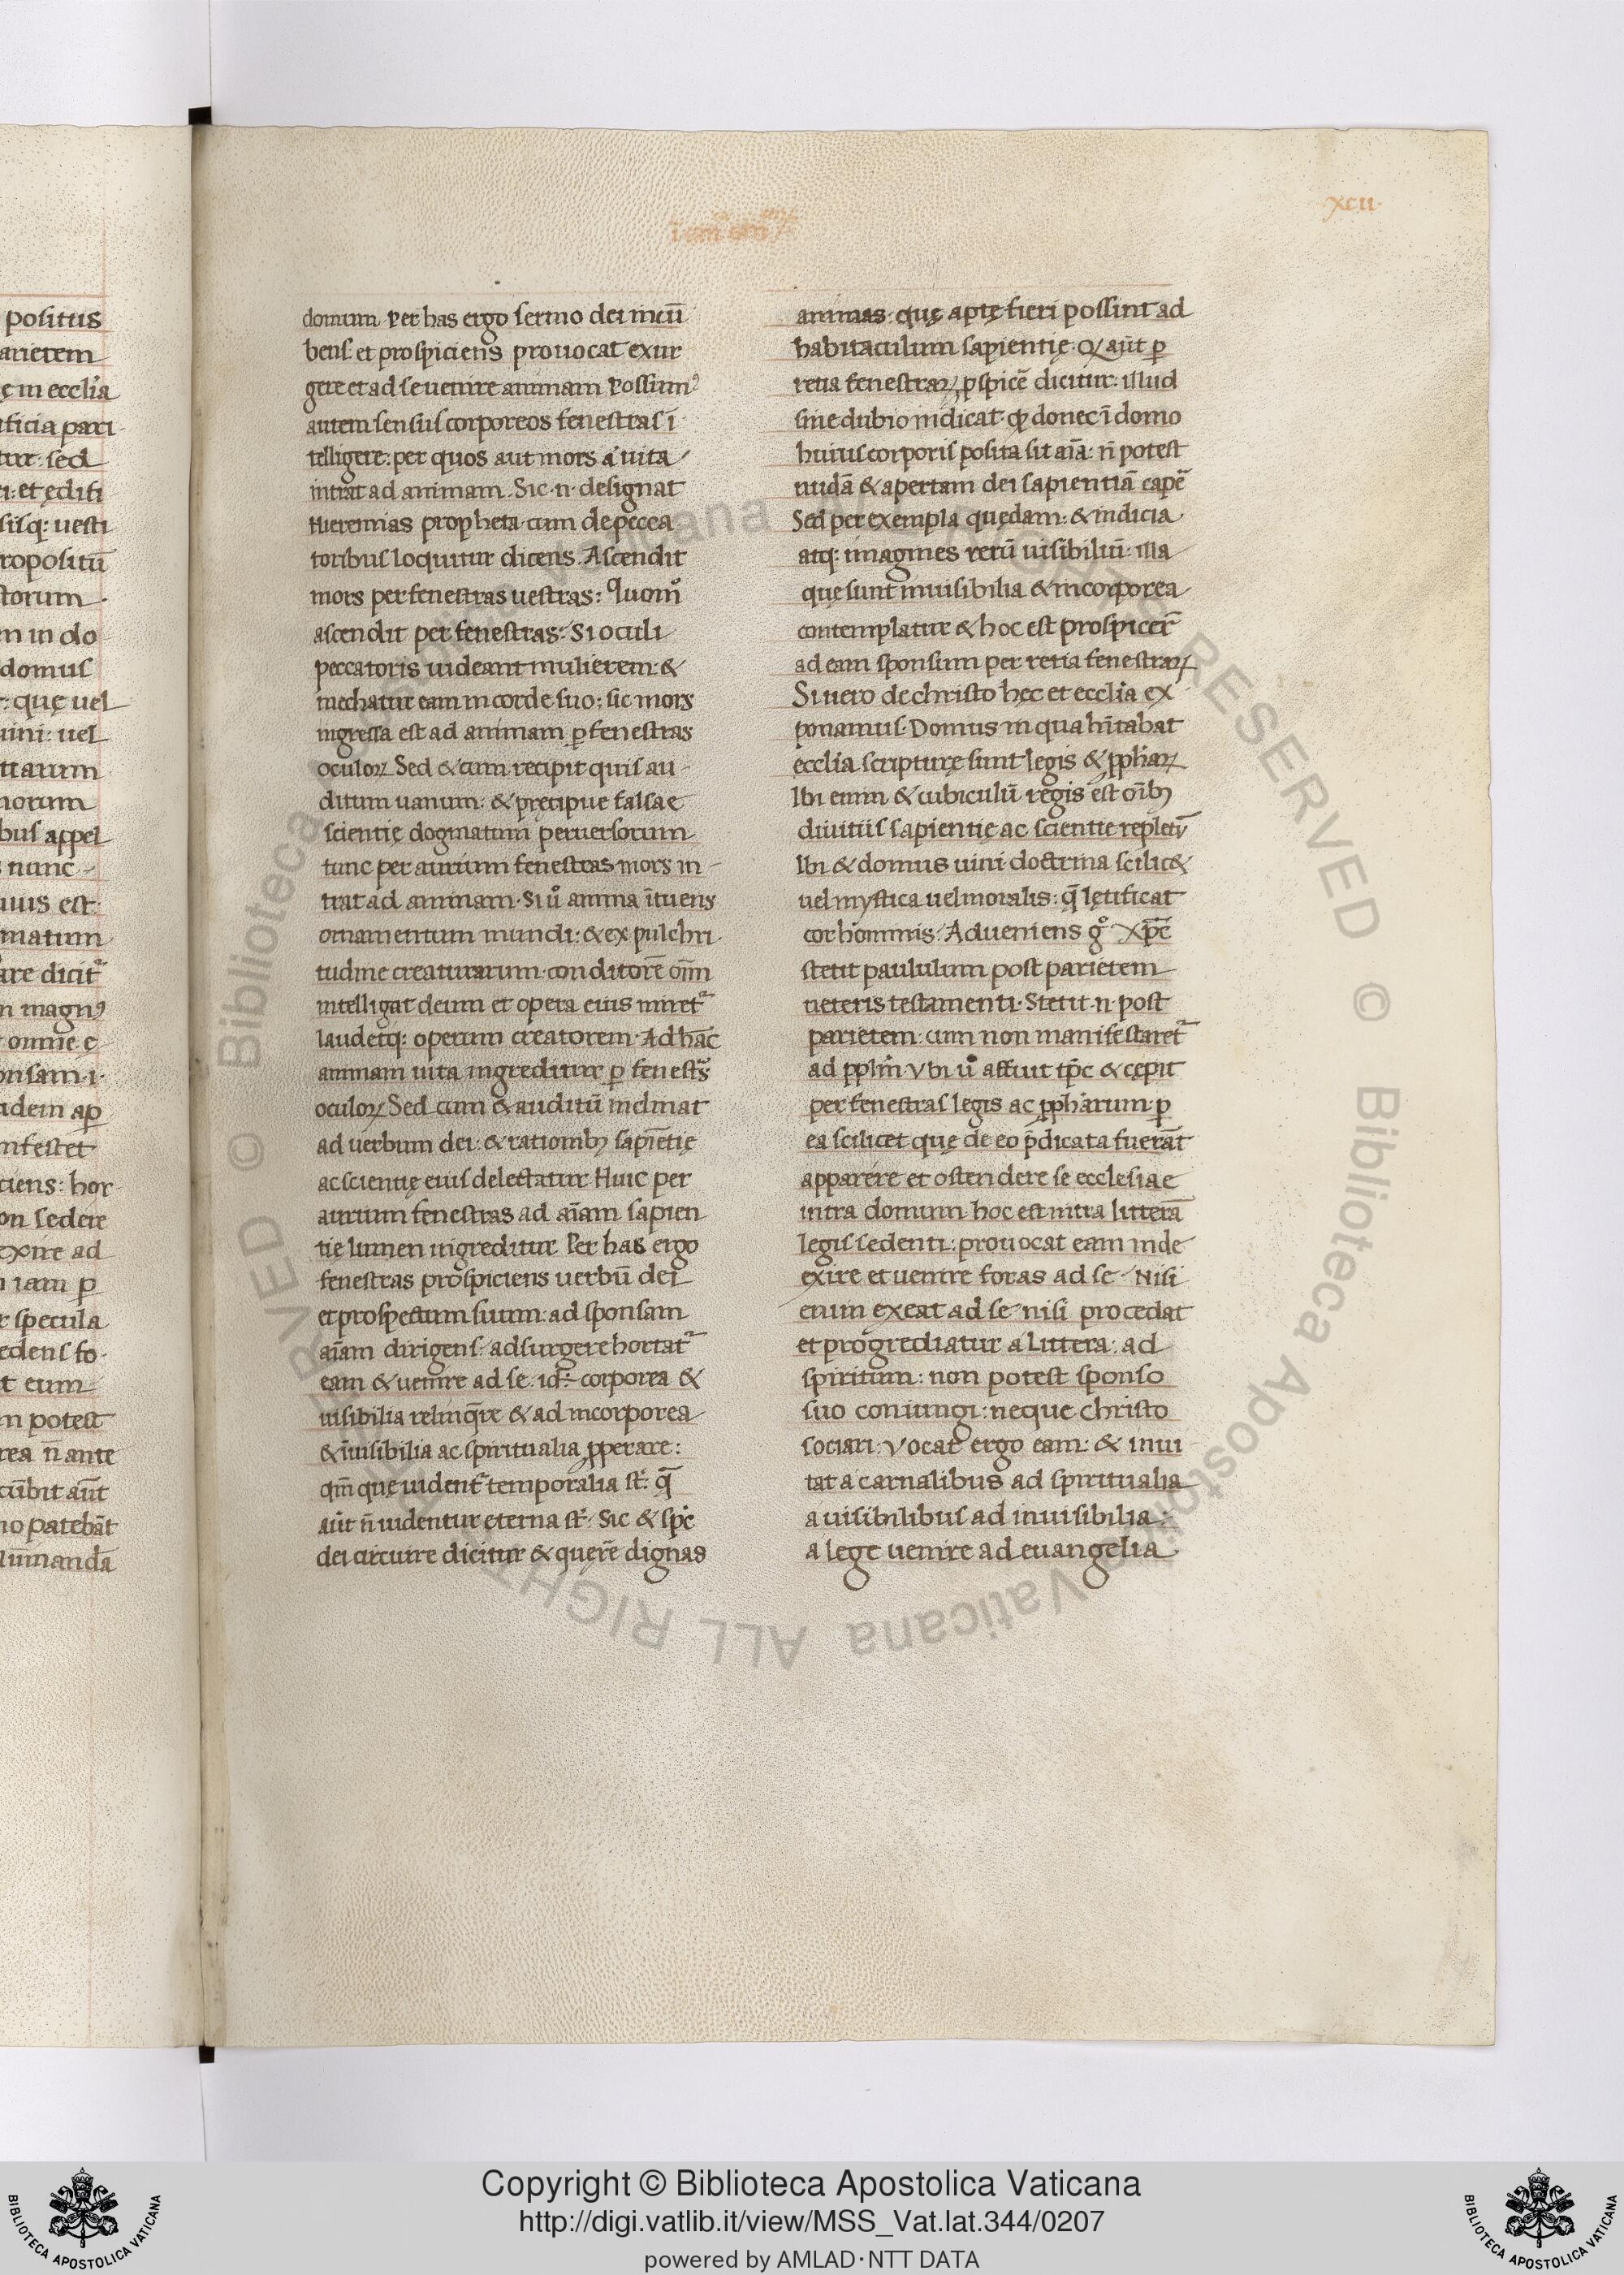 xcii
domum. Per has ergo sermo dei incū
bens et prospiciens prouocat exur
gere et ad se uenire animam. Possumꝰ
autem sensus corporeos fenestras ī
telligere: per quos aut mors aut uita
intrat ad animam. Sic .n. designat
Hieremias propheta cum de pecca
toribus loquitur dicens. Ascendit
mors per fenestras uestras: Quomͦ
ascendit per fenestras: Si oculi
peccatoris uideant mulierem: &
mechatur eam in corde suo: sic mors
ingressa est ad animam ꝑ fenestras
oculoꝝ Sed & cum recipit quis au-
ditum uanum: & pręcipue falsae
scientię dogmatum peruersorum
tunc per aurium fenestras mors in-
trat ad animam. Si uͦ anima ītuens
ornamentum mundi: & ex pulchri
tudine creaturarum conditorē oīm
intelligat deum et opera eius miret᷑
laudetq: operum creatorem. Ad hāc
animam uita ingreditur ꝑ fenest᷑s
oculoꝝ Sed cum & auditū inclinat
ad uerbum dei: & rationibꝫ sapiētię
ac scientię eius delectatur. Huic per
aurium fenestras ad aīam sapien
tię lumen ingreditur. Per has ergo
fenestras prospiciens uerbū dei
et prospectum suum: ad sponsam
aīam dirigens: adsurgere hortat᷑
eam & uenire ad se: id ÷: corporea &
uisibilia relinq̄re & ad incorporea
& īuisibilia ac spiritualia ꝓperare:
qm̄ que uident᷑ temporalia st̄: q̄
aūt n̄ uidentur eterna st̄: Sic & spc̄
dei circuire dicitur & quęrē dignas
animas: quę aptę fieri possint ad
habitaculum sapientię. Q aūt ꝑ
retia fenestraꝝ ꝑspicē dicitur: illud
sine dubio indicat: qꝫ donec ī domo
huius corporis posita sit aīa: n̄ potest
nudā & apertam dei sapientiā capē
Sed per exempla quędam: & indicia
atq: imagines rerū uisibiliū: illa
que sunt inuisibilia & incorporea
contemplatur & hoc est prospicer̄
ad eam sponsum per retia fenestraꝝ
Si uero de christo hęc et eccl̄ia ex
ponamus. Domus in qua hītabat
eccl̄ia scripturę sunt legis & ꝓphaꝝ
Ibi enim & cubiculū regis est oībꝫ
diuitiis sapientię ac scientie repletū
Ibi & domus uini doctrina scilic&
uel mystica uel moralis: q̄ lętificat
cor hominis. Adueniens gͦ Xp̄c
stetit paululum post parietem
ueteris testamenti. Stetit .n. post
parietem: cum non manifestaret᷑
ad ppl̄m Vbi uͦ affuit tp̄c & cępit
per fenestras legis ac ꝓpharum: ꝑ
ea scilicet quę de eo p̄dicata fuerāt
apparere et ostendere se ecclesiae
intra domum hoc est intra litterā
legis sedenti: prouocat eam inde
exire et uenire foras ad se. Nisi
enim exeat ad se nisi procedat
et progrediatur a Littera: ad
spiritum: non potest sponso
suo coniungi: neque christo
sociari: Vocat ergo eam: & inui
tat a carnalibus ad spiritualia
a uisibilibus ad inuisibilia:
a lege uenire ad euangelia
positus
arietem
ę in eccl̄ia
ificia pari
tur: sed
ri: et ędifi
silq: uesti
ropositū
storum
m in do
domus
: que uel
uini: uel
ttarum
norum
bus appel
nunc -
uuis est
matum
are dicit᷑
n magnꝰ
omne e
onsam .i.
idem aꝑ
nfestet
ciens: hor
on sedere
exire ad
iam ꝑ
r specula
edens fo
t eum
m potest
rea n̄ ante
cūbit aūt
no patebāt
lūinanda
Copyright © Biblioteca Apostolica Vaticana
http://digi.vatlib.it/view/MSS_Vat.lat.344/0207
powered by AMLAD·NTT DATA
BIBLIOTECA APOSTOLICA VATICANA
BIBLIOTECA APOSTOLICA VATICANA
© Biblioteca Apostolica Vaticana ALL RIGHTS RESERVED © Biblioteca Apostolica Vaticana ALL RIGHTS RESERVED